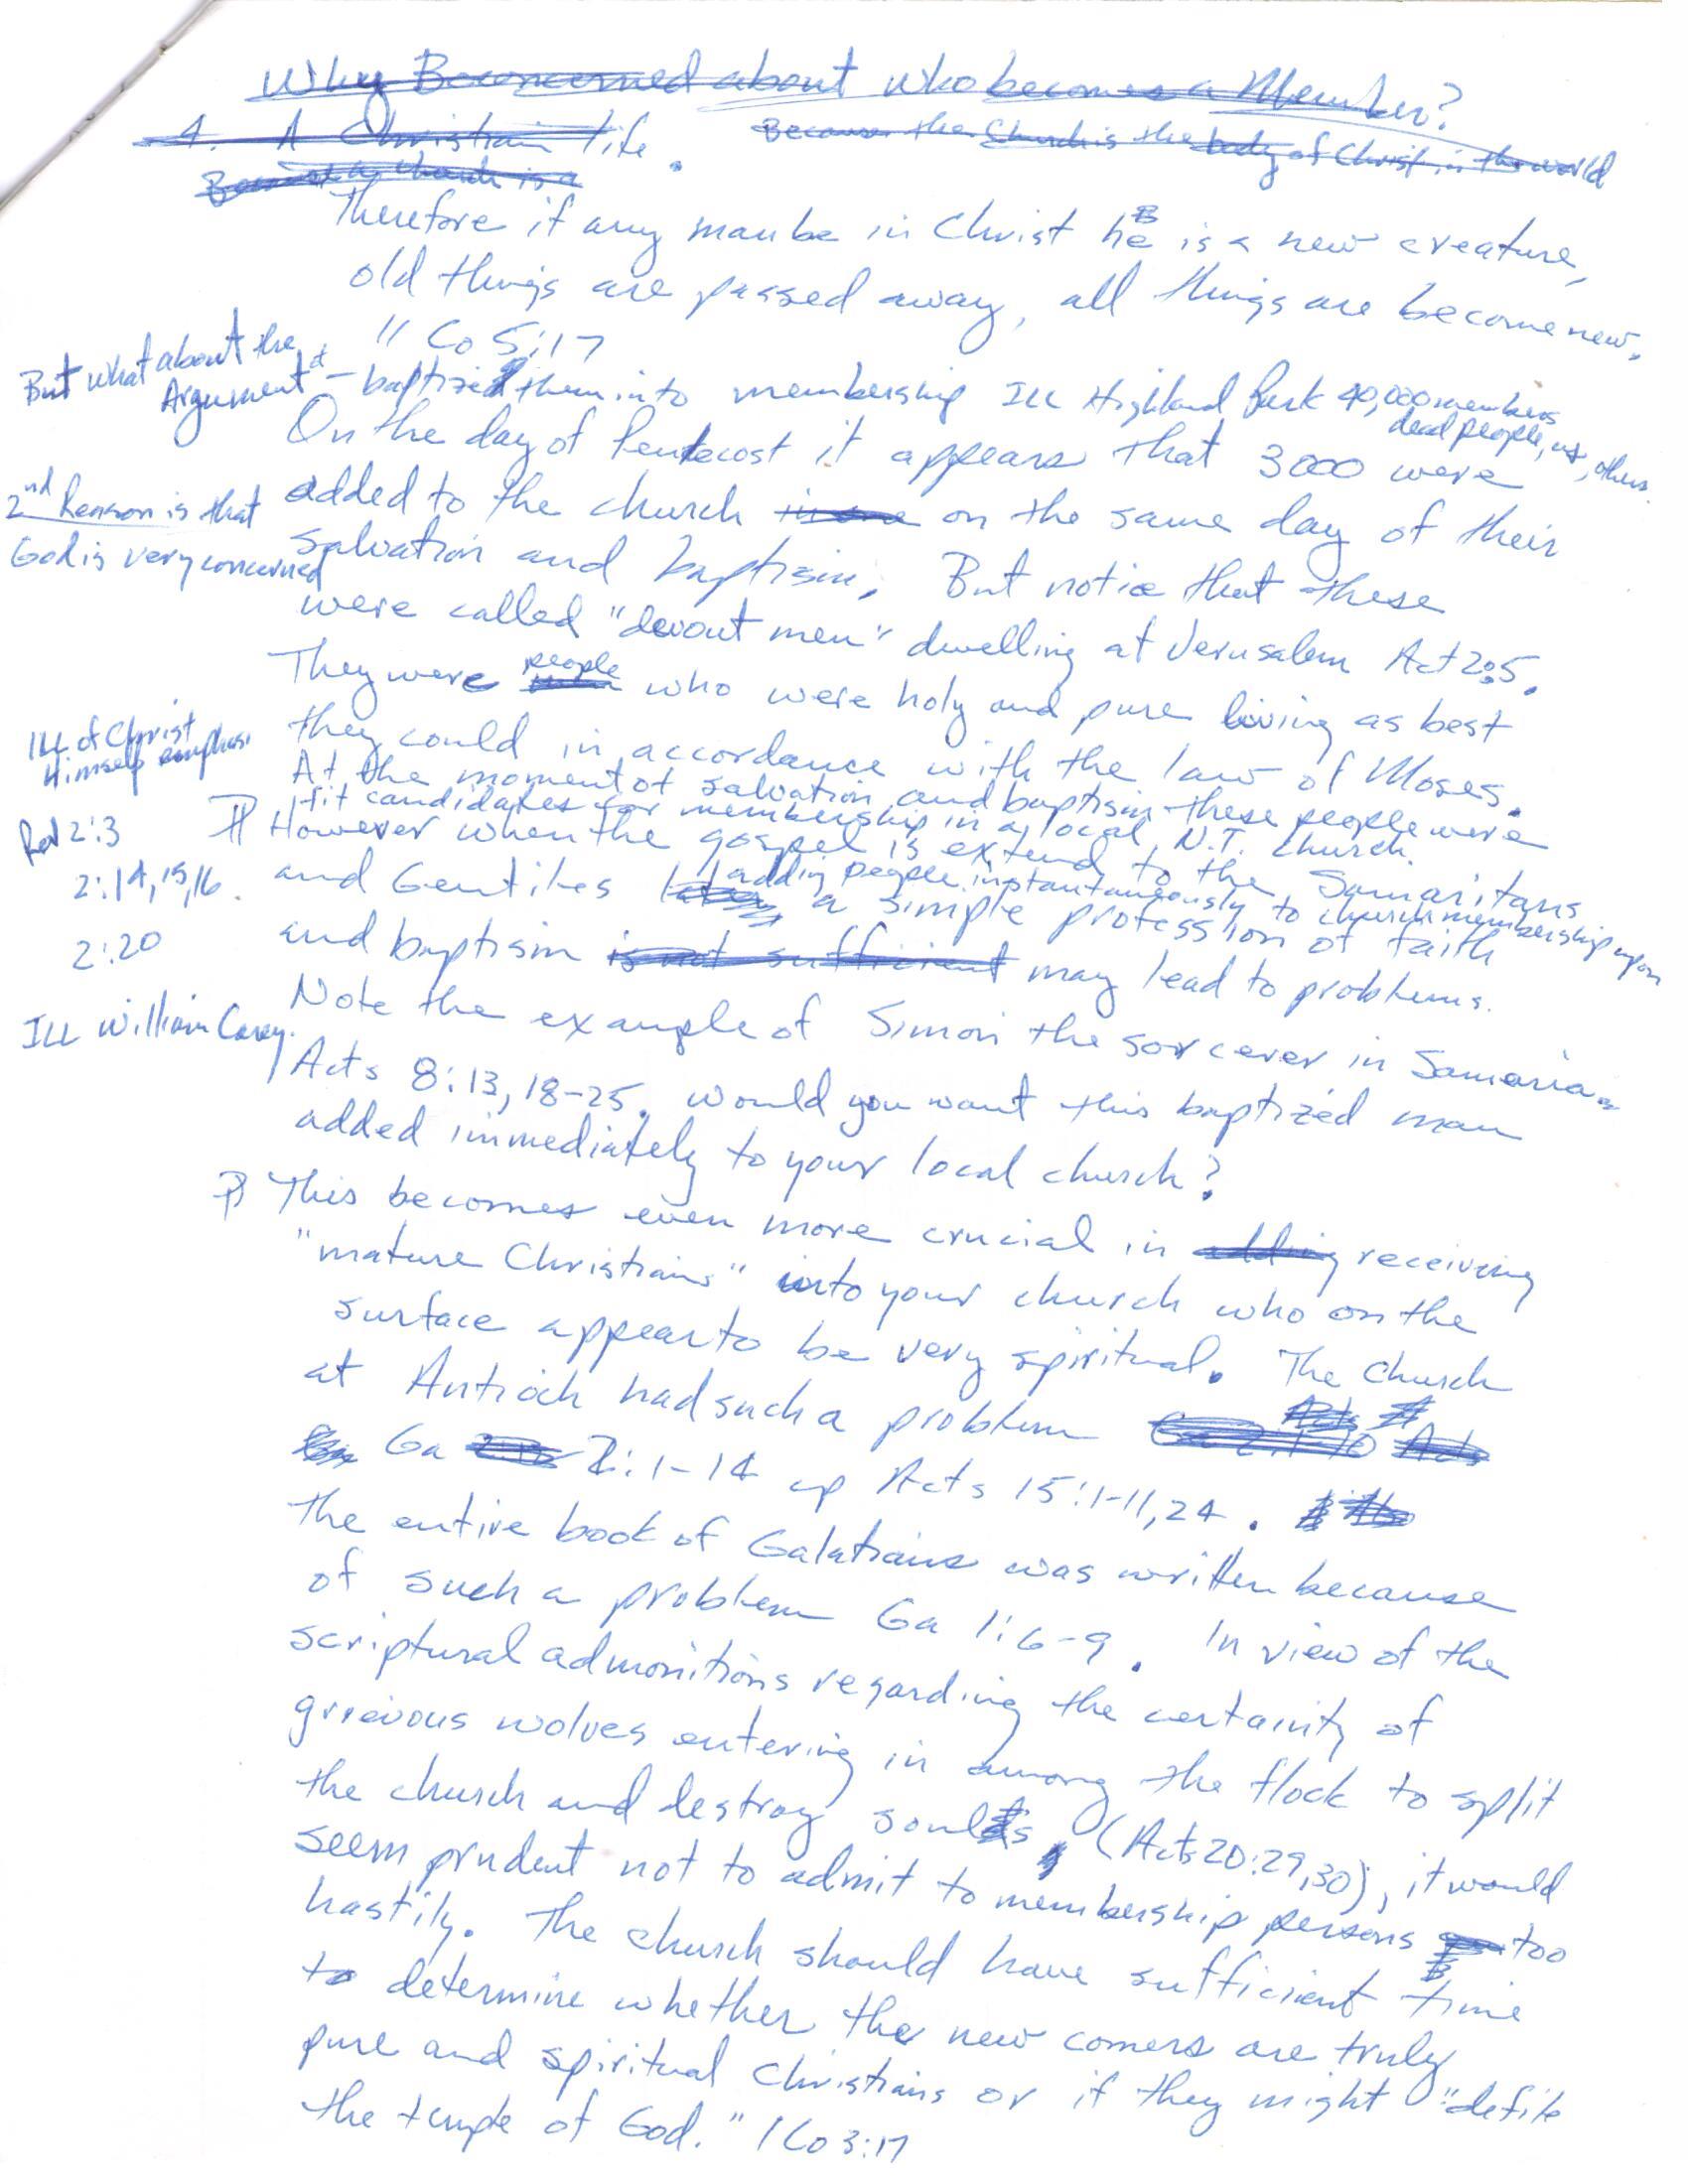 Why Beconcerned about who becomes a Member?
4. A Christian life.
Because the Church is the body of Christ in the world
Because a Church is a
Therefore if any man be in Christ he is a new creature,
old things are passed away, all things are become new.
II Co 5:17
But what about the
Argument - baptized them into membership Ill Highland Park 40,000 members
dead people, us, others.
On the day of Pentecost it appears that 3000 were
2nd Reason is that
God is very concerned
added to the church on the same day of their
salvation and baptism. But notice that these
were called "devout men" dwelling at Jerusalem Act 2:5.
They were people who were holy and pure living as best
they could in accordance with the law of Moses.
Ill of Christ
Himself emphas.
At the moment of salvation and baptism these people were
fit candidates for membership in a local N.T. church.
Rev 2:3
2:14,15,16.
2:20
However when the gospel is extend to the Samaritans
and Gentiles adding people instantaneously to church membership upon
a simple profession of faith
and baptism is not sufficient may lead to problems.
Ill William Carey.
Note the example of Simon the sorcerer in Samaria.
Acts 8:13, 18-25. would you want this baptized man
added immediately to your local church?
This becomes even more crucial in adding receiving
"mature Christians" into your church who on the
surface appear to be very spiritual. The church
at Antioch had such a problem
Ga 2:1-14 cp Acts 15:1-11,24.
The entire book of Galatians was written because
of such a problem Ga 1:6-9. In view of the
scriptural admonitions regarding the certainity of
grievous wolves entering in among the flock to split
the church and destroy souls, (Acts 20:29,30), it would
seem prudent not to admit to membership persons too
hastily. The church should have sufficient time
to determine whether the new comers are truly
pure and spiritual Christians or if they might "defile
the temple of God." I Co 3:17